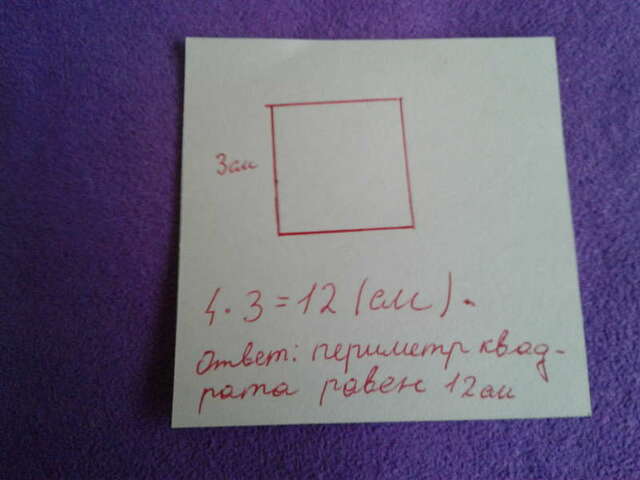 3см
4·3=12 (см).
Ответ: периметр квад-
рата равен 12см